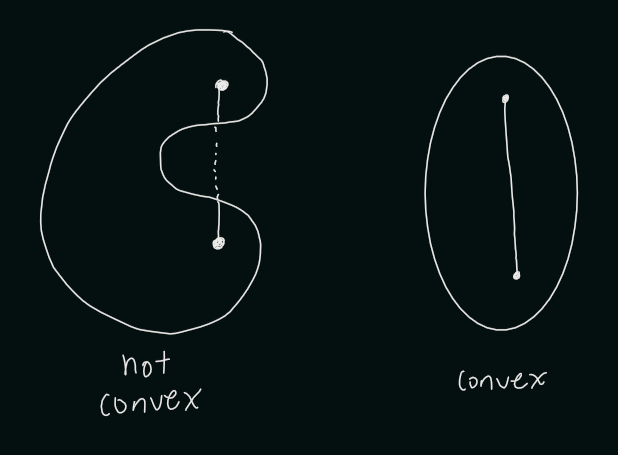 not
convex
convex